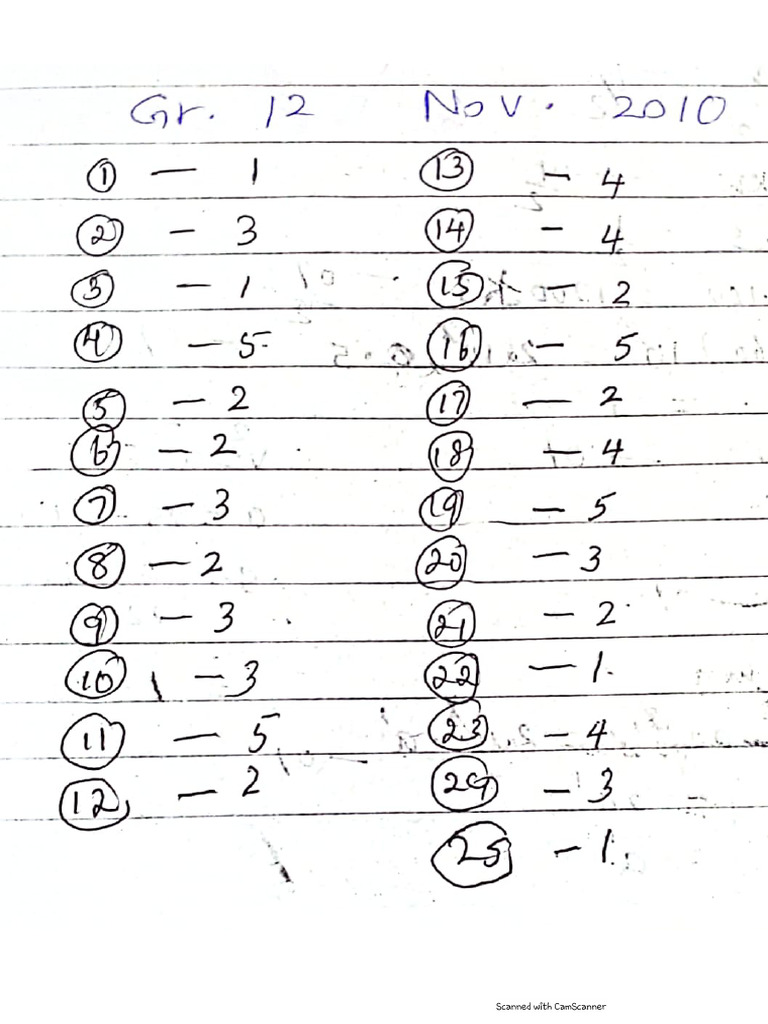 Gr. 12 Nov. 2010
1 — 1
2 — 3
3 — 1
4 — 5
5 — 2
6 — 2
7 — 3
8 — 2
9 — 3
10 — 3
11 — 5
12 — 2
13 — 4
14 — 4
15 — 2
16 — 5
17 — 2
18 — 4
19 — 5
20 — 3
21 — 2
22 — 1.
23 — 4
24 — 3
25 — 1.
Scanned with CamScanner